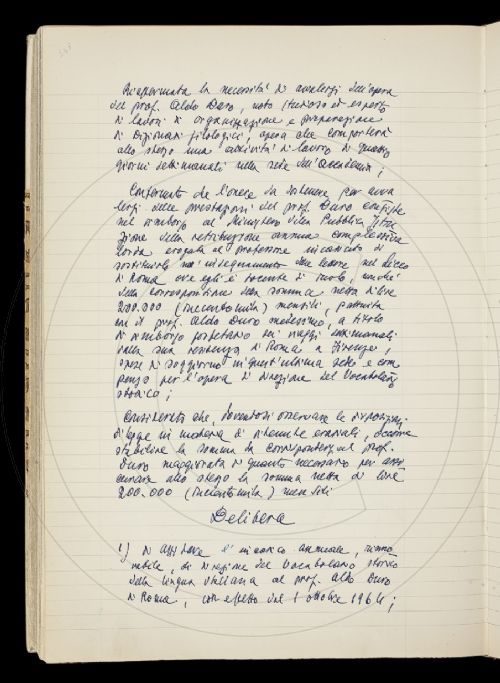 Riaffermata la necessità di avvalersi dell'opera
del prof. Aldo Duro, noto studioso ed esperto
di lavori di organizzazione e preparazione
di Dizionari filologici, opera che comporterà
allo stesso una attività di lavoro di quattro
giorni settimanali nella sede dell'Accademia;
Confermato che l'onere da sostenere per avva
lersi delle prestazioni del prof. Duro consiste
nel rimborso al Ministero della Pubblica Istru
zione della retribuzione annua complessiva
lorda erogata al professore incaricato di
sostituirlo nell'insegnamento delle lettere nel liceo
di Roma ove egli è docente di ruolo, anche
della corresponsione della somma netta di lire
200.000 (duecentomila) mensili, pattuita
con il prof. Aldo Duro medesimo, a titolo
di rimborso forfetario dei viaggi settimanali
dalla sua residenza di Roma a Firenze,
spese di soggiorno in quest'ultima sede e com
penso per l'opera di direzione del Vocabolario
storico;
Considerato che, dovendosi osservare le disposizioni
di legge in materia di ritenute erariali, occorre
stabilire la somma da corrispondersi al prof.
Duro maggiorata di quanto necessario per assi
curare allo stesso la somma netta di lire
200.000 (duecentomila) mensili
Delibera
1) di affidare l'incarico annuale, rinno
vabile, di direzione del Vocabolario storico
della lingua italiana al prof. Aldo Duro
di Roma, con effetto dal 1 ottobre 1964;